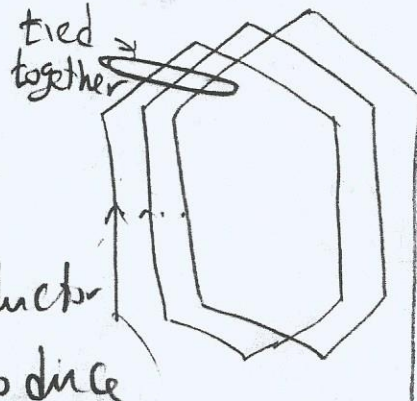 tied
together
uctor
oduce